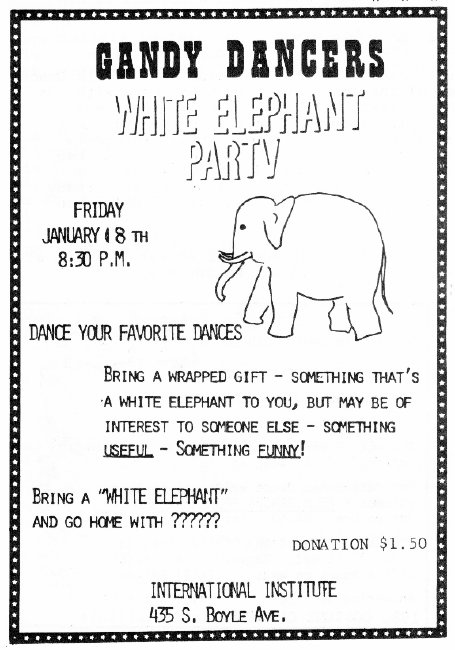 GANDY DANCERS
WHITE ELEPHANT
PARTY
FRIDAY
JANUARY 18 TH
8:30 P.M.
DANCE YOUR FAVORITE DANCES
BRING A WRAPPED GIFT - SOMETHING THAT'S
A WHITE ELEPHANT TO YOU, BUT MAY BE OF
INTEREST TO SOMEONE ELSE - SOMETHING
USEFUL - SOMETHING FUNNY!
BRING A "WHITE ELEPHANT"
AND GO HOME WITH ??????
DONATION $1.50
INTERNATIONAL INSTITUTE
435 S. BOYLE AVE.